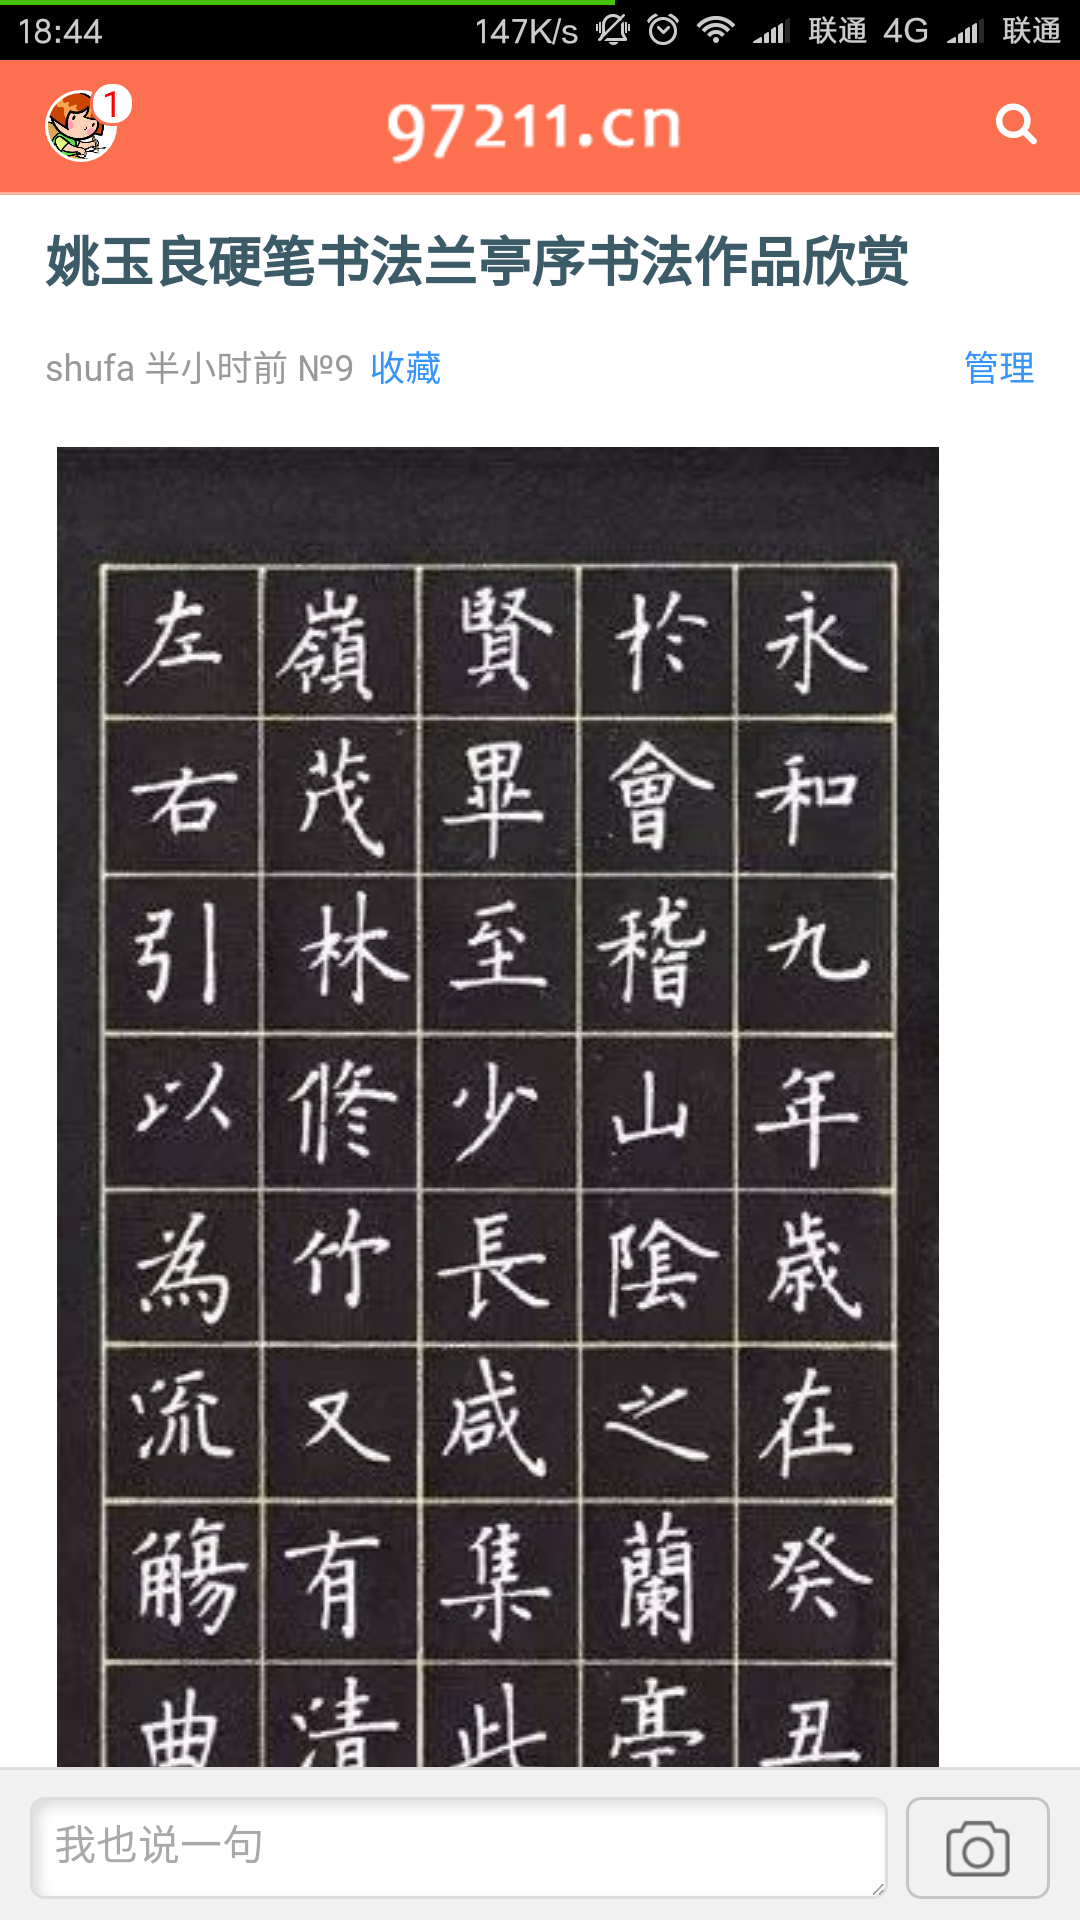 18:44 147K/s 联通 4G 联通
1 97211.cn
姚玉良硬笔书法兰亭序书法作品欣赏
shufa 半小时前 №9 收藏 管理
永和九年歲在癸丑
於會稽山陰之蘭亭
賢畢至少長咸集此
嶺茂林修竹又有清
左右引以為流觴曲
我也说一句